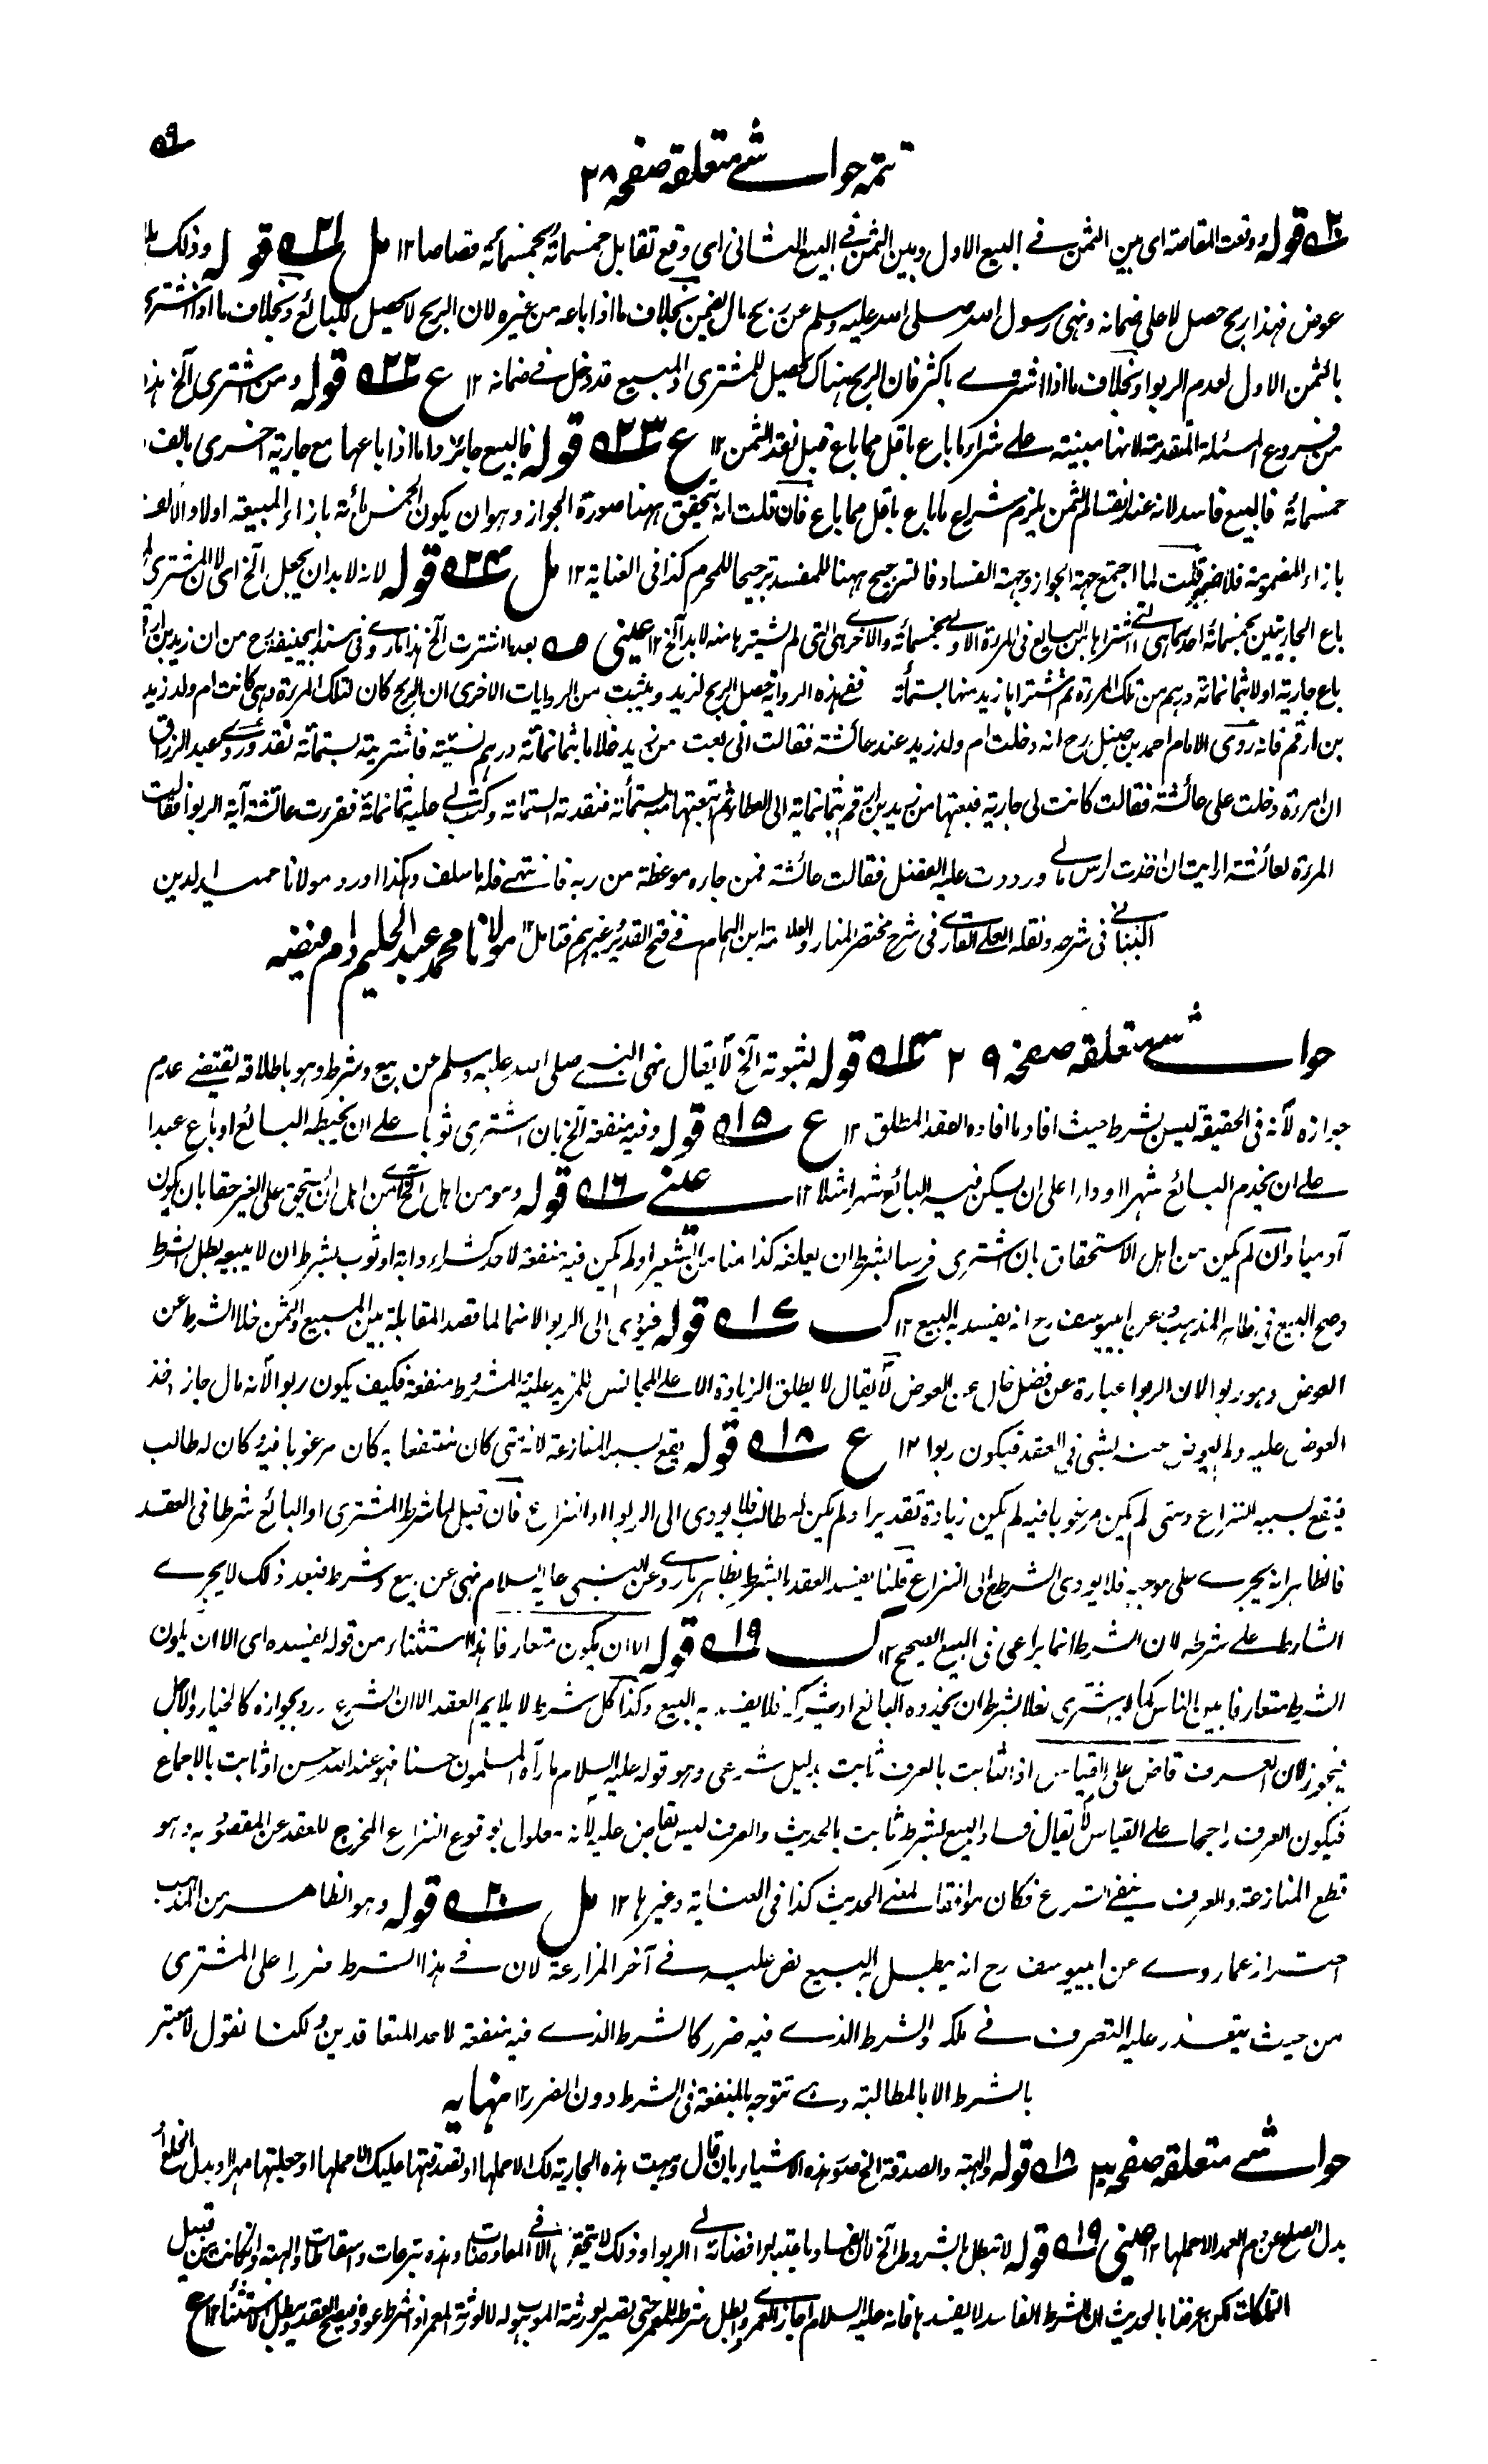 ٥٩
تتمه حواشے متعلقه صفحه ٢٨
٢٠ قوله ووقعت المقاصة اى بين الثمن فے البيع الاول وبين الثمن فے البيع الثانى اى وقع تقابل خمسمائة بخمسمائة قصاصا ١٢ مل ٢١ قوله وذلك بلا
عوض فهذا ربح حصل لا على ضمانه ونهى رسول الله صلى الله عليه وسلم عن ربح ما لم يضمن بخلاف ما اذا باعه من غيره لان الربح لا يحصل للبائع وبخلاف ما اذا اشترى
بالثمن الاول لعدم الربوا وبخلاف ما اذا اشترے باكثر فان الربح هناك يحصل للمشترى والمبيع قد دخل فے ضمانه ١٢ ع ٢٢ قوله ومن اشترى آلخ هذا
من فروع المسئلة المتقدمة لانها مبنية علے شراء ما باع باقل مما باع قبل نقد الثمن ١٢ ع ٢٣ قوله فالبيع جائز واما اذا باعها مع جارية اخرى بالف و
خمسمائة فالبيع فاسد لانه عند انقسام الثمن يلزم شراء ما باع باقل مما باع فان قلت انه يتحقق ههنا صورة الجواز وهو ان يكون الخمس مائة بازاء المبيعة اولا والالف
بازاء المضمومة فلا ضير قلت لما اجتمع جهة الجواز وجهة الفساد فالترجيح ههنا للمفسد ترجيحا للمحرم كذا فى العناية ١٢ مل ٢٤ قوله لانه لا بد ان يجعل آلخ اى لان المشترى لما
باع الجاريتين بخمسمائة احدهما هى التى اشتراها من البائع فى المرة الاولى بخمسمائة والاخرى هى التى لم يشترها منه لا بد آلخ ١٢ عينى ٥ بعد ما اشترت آلخ هذا ما روے فى مسند ابيحنيفة رح من ان زيد بن ارقم
باع جارية اولا بثمانمائة درهم من تلك المرءة ثم اشتراها زيد منها بستمأة ففے هذه الرواية حصل الربح لزيد ويثبت من الروايات الاخرى ان الربح كان لتلك المرءة وهى كانت ام ولد زيد
بن ارقم فانه روى الامام احمد بن حنبل رح انه دخلت ام ولد زيد عند عائشة فقالت انى بعت من زيد غلاما بثمانمائة درهم نسئة فاشتريته بستمائة نقدا وروے عبد الرزاق
ان امرءة دخلت على عائشة فقالت كانت لى جارية فبعتها من زيد بن ارقم بثمانماية الى العطاء ثم ابتعتها منه بستمأة فنقدته الستمائة وكتب لے عليه ثمانمائة فقرءت عائشة آية الربوا فقالت
المرءة لعائشة ارايت ان اخذت راس مالے ورددت عليه الفضل فقالت عائشة فمن جاءه موعظة من ربه فانتهے فله ما سلف وهكذا اورد مولانا حميد الدين
البنبانے فى شرحه ونقله العلى القارے فى شرح مختصر المنار والعلامة ابن الهمام فے فتح القدير وغيرهم فتامل ١٢ مولانا محمد عبد الحليم دام فيضه
حواشے متعلقه صفحه ٢٩ ١٣ قوله لثبوته آلخ لا يقال نهى النبى صلى الله عليه وسلم عن بيع وشرط وهو باطلاقه يقتضے عدم
جوازه لانه فى الحقيقة ليس بشرط حيث افاد ما افاده العقد المطلق ١٢ ع ١٥ قوله وفيه منفعة آلخ بان اشترى ثوبا علے ان يخيطه البائع او باع عبدا
علے ان يخدم البائع شهرا او دارا على ان يسكن فيه البائع شهرا مثلا ١٢ عينے ١٦ قوله وهو من اهل آلخ اى من اهل ان يستحق على الغير حقا بان يكون
آدميا وان لم يكن من اهل الاستحقاق بان اشترى فرسا بشرط ان يعلفه كذا منا من الشعير او لم يكن فيه منفعة لاحد كشراء دابة او ثوب بشرط ان لا يبيعه يطل الشرط
وصح البيع فى ظاهر المذهب وعن ابييوسف رح انه يفسد به البيع ١٢ ك ١٧ قوله فيؤدى الى الربوا لانهما لما قصد المقابلة بين المبيع والثمن خلا الشرط عن
العوض وهو ربوا لان الربوا عبارة عن فضل خال عن العوض لا يقال لا يطلق الزيادة الا علے المجانس للمزيد عليه والمشروط منفعة فكيف يكون ربوا لانه مال جاز اخذ
العوض عليه ولم يعوض منه بشئ فى العقد فيكون ربوا ١٢ ع ١٨ قوله يقع بسببه المنازعة لانه متى كان منتفعا به كان مرغوبا فيه وكان له طالب
فيقع بسببه النزاع ومتى لم يكن مرغوبا فيه لم يكن زيادة تقديرا ولم يكن له طالب فلا يودى الى الربوا او النزاع فان قيل لما شرط المشترى او البائع شرطا فى العقد
فالظاهر انه يجرے على موجبه فلا يودى الشرط الى النزاع قلنا يفسد العقد بالشرط بظاهر ما روے عن النبى عليه السلام نهى عن بيع وشرط فبعد ذلك لا يجرے
الشارط علے شرطه لان الشرط انما يراعى فى البيع الصحيح ١٢ ك ١٩ قوله الا ان يكون متعارفا هذا استثناء من قوله يفسده اى الا ان يكون
الشرط متعارفا بين الناس كما لو اشترى نعلا بشرط ان يحذوه البائع او يشركه فلا يفسد به البيع وكذا كل شرط لا يلايم العقد الا ان الشرع ورد بجوازه كالخيار والاجل
فيجوز لان العرف قاض على القياس اذ الثابت بالعرف ثابت بدليل شرعى وهو قوله عليه السلام ما رآه المسلمون حسنا فهو عند الله حسن او ثابت بالاجماع
فيكون العرف راجحا على القياس لا يقال فساد البيع بشرط ثابت بالحديث والعرف ليس بقاض عليه لانه معلول بوقوع النزاع المخرج للعقد عن المقصود به وهو
قطع المنازعة والعرف ينفے النزاع فكان موافقا لمعنى الحديث كذا فى العناية وغيرها ١٢ مل ٢٠ قوله وهو الظاهر من المذهب
احتراز عما روے عن ابييوسف رح انه يبطل به البيع نص عليه فے آخر المزارعة لان فے هذا الشرط ضررا على المشترى
من حيث يتعذر عليه التصرف فے ملكه والشرط الذے فيه ضرر كالشرط الذے فيه منفعة لاحد المتعاقدين ولكنا نقول لا معتبر
بالشرط الا بالمطالبة وهے تتوجه بالمنفعة فى الشرط دون الضرر ١٢ نهايه
حواشے متعلقه صفحه ٣٠ ١٨ قوله والهبة والصدقة الخ صور هذه الاشياء بان قال وهبت هذه الجارية لك الا حملها او تصدقتها عليك الا حملها او جعلتها مهرا او بدل الخلع او
بدل الصلح عن دم العمد الا حملها ١٢ عينى ١٩ قوله لا تبطل بالشروط آلخ لان الفساد باعتبار افضائه الے الربوا وذلك لا يتحقق الا فے المعاوضات وهذه تبرعات واسقاطات والهبة وان كانت من قبيل
التملكات لكن عرفنا بالحديث ان الشرط الفاسد لا يفسدها فانه عليه السلام اجاز العمرے وابطل شرط المعمر حتى تصير لورثة الموهوب له لا لورثة المعمر اذا شرط عوده فيصح العقد ويبطل الاستثناء ١٢ ع